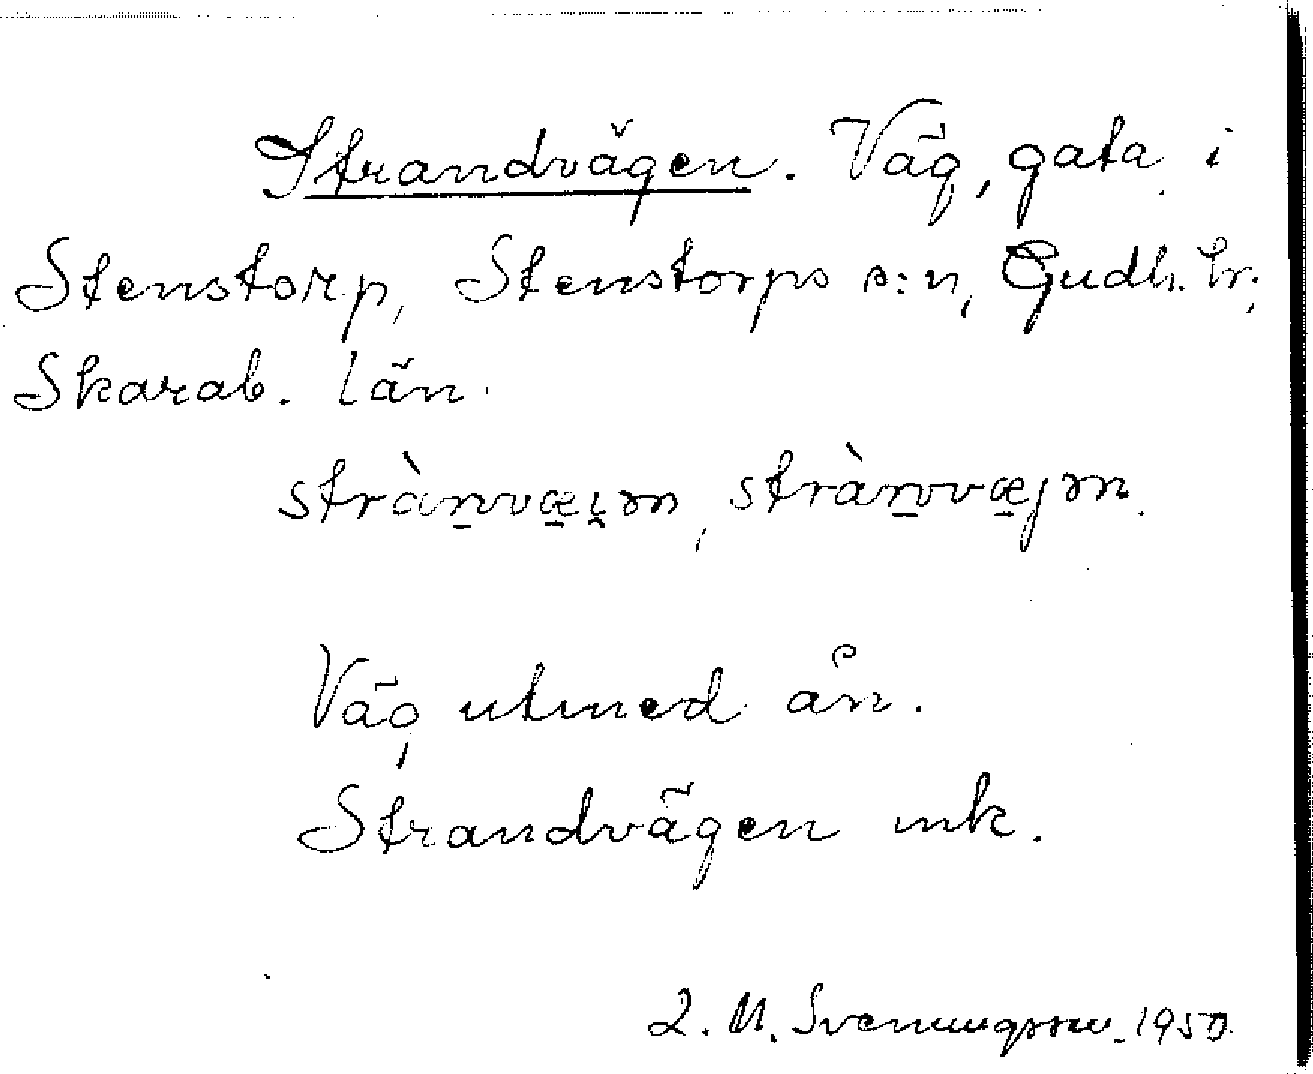 Strandvägen. Väg, gata i
Stenstorp, Stenstorps s:n, Gudh. hr.,
Skarab. län.
stràn̠væ̠i̯ən, stràn̠væ̠jən.
Väg utmed ån.
Strandvägen mk.
Svenungsson 1950